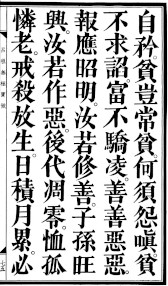 自矜。貧豈常貧。何須怨嗔。貧
不求諂。富不驕凌。善善惡惡。
報應昭明。汝若修善。子孫旺
興。汝若作惡。後代凋零。恤孤
憐老。戒殺放生。日積月累。必
七五